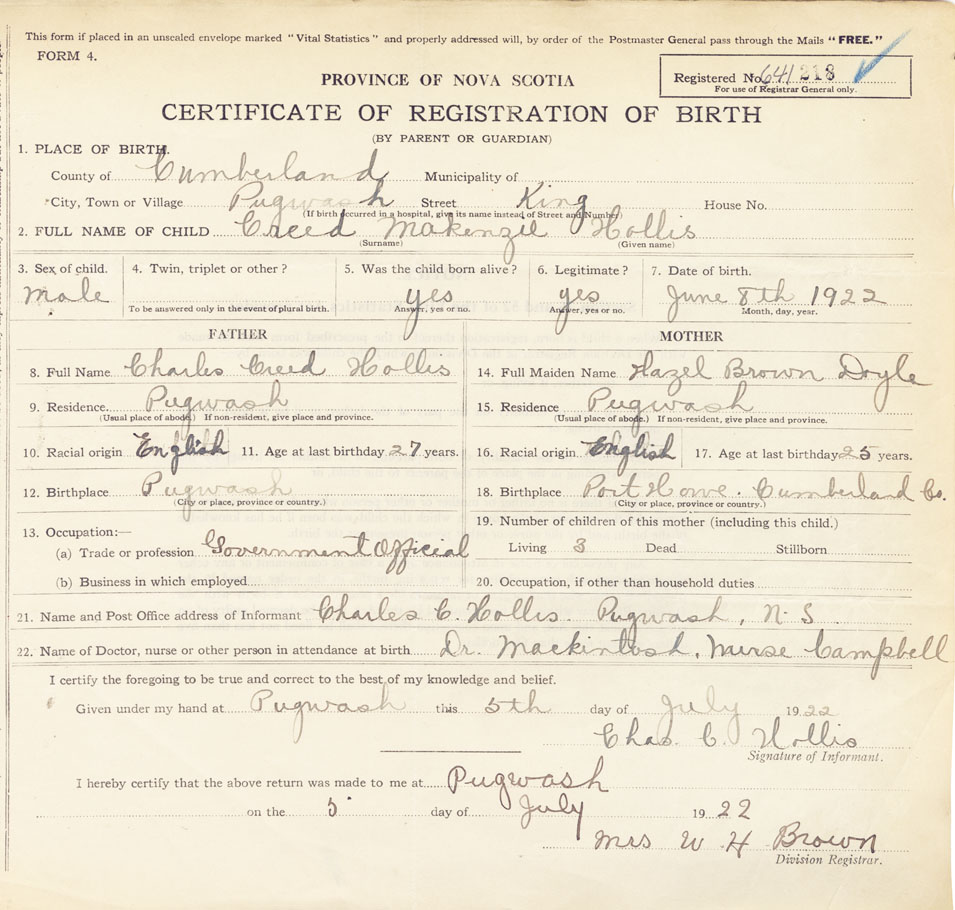 This form if placed in an unsealed envelope marked "Vital Statistics" and properly addressed will, by order of the Postmaster General pass through the Mails "FREE."
FORM 4.
PROVINCE OF NOVA SCOTIA
Registered No. 641 218
For use of Registrar General only.
CERTIFICATE OF REGISTRATION OF BIRTH
(BY PARENT OR GUARDIAN)
1. PLACE OF BIRTH.
County of Cumberland Municipality of
City, Town or Village Pugwash Street King House No.
(If birth occurred in a hospital, give its name instead of Street and Number)
2. FULL NAME OF CHILD Creed Makenzie Hollis
(Surname) (Given name)
3. Sex of child. 4. Twin, triplet or other? 5. Was the child born alive? 6. Legitimate? 7. Date of birth.
male yes yes June 8th 1922
To be answered only in the event of plural birth. Answer, yes or no. Answer, yes or no. Month, day, year.
FATHER MOTHER
8. Full Name Charles Creed Hollis 14. Full Maiden Name Hazel Brown Doyle
9. Residence. Pugwash 15. Residence Pugwash
(Usual place of abode.) If non-resident, give place and province. (Usual place of abode.) If non-resident, give place and province.
10. Racial origin English 11. Age at last birthday 27 years. 16. Racial origin English 17. Age at last birthday 25 years.
12. Birthplace Pugwash 18. Birthplace Port Howe. Cumberland Co.
(City or place, province or country.) (City or place, province or country.)
13. Occupation:— 19. Number of children of this mother (including this child.)
(a) Trade or profession Government Official Living 3 Dead Stillborn
(b) Business in which employed 20. Occupation, if other than household duties
21. Name and Post Office address of Informant Charles C. Hollis. Pugwash, N. S.
22. Name of Doctor, nurse or other person in attendance at birth Dr. Mackintosh, Nurse Campbell
I certify the foregoing to be true and correct to the best of my knowledge and belief.
Given under my hand at Pugwash this 5th day of July 1922
Chas. C. Hollis
Signature of Informant.
I hereby certify that the above return was made to me at Pugwash
on the 5 day of July 1922
Mrs W H Brown
Division Registrar.